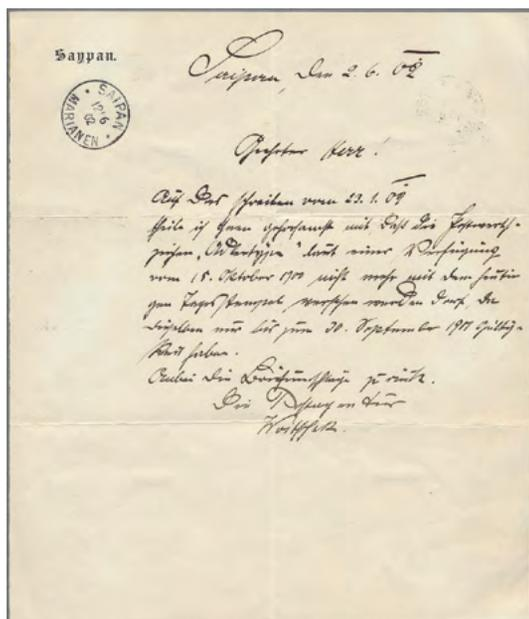 Saypan.
Saipan, den 2.6.02
SAIPAN
12/6
02
MARIANEN
Geehrter Herr!
Auf das Schreiben vom 23.1.02
theile ich Ihnen gehorsamst mit daß die Postwerth-
zeichen „Adlertype“ laut einer Verfügung
vom 15. Oktober 1900 nicht mehr mit dem heuti
gen Tagesstempel versehen werden darf da
dieselben nur bis zum 30. September 1901 Gültig-
keit haben.
Anbei die Briefumschläge zurück.
Die Postagentur